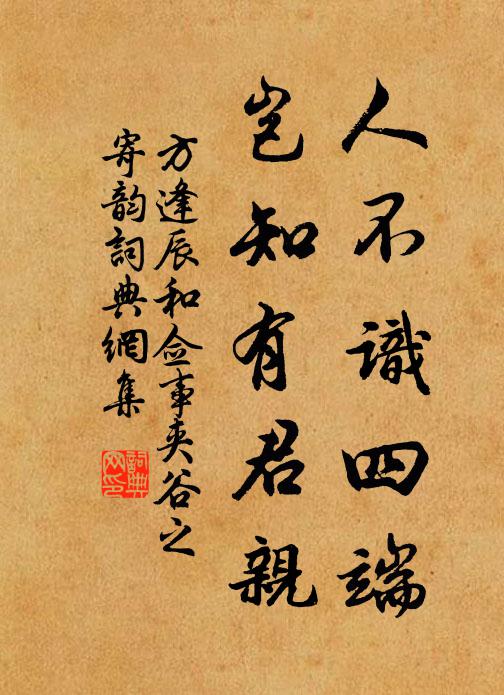 人不識四端
岂知有君親
方逢辰和佥事夹谷之
寄韵詞典網集
詞典
网印